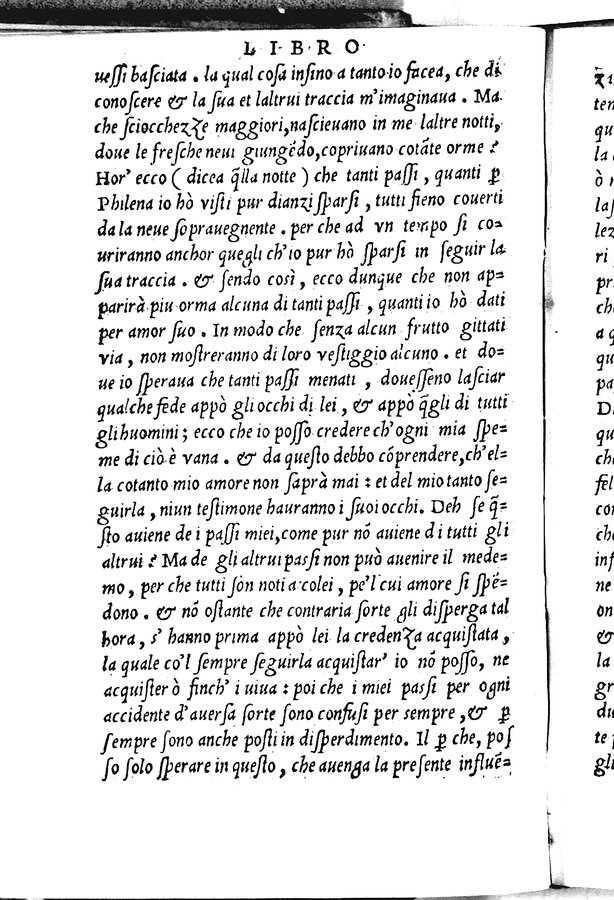 L I B R O
uessi basciata . la qual cosa insino a tanto io facea, che di
conoscere & la sua et laltrui traccia m'imaginaua . Ma
che sciocchezze maggiori, nascieuano in me laltre notti,
doue le fresche neui giungẽdo, copriuano cotãte orme ?
Hor' ecco ( dicea q̃lla notte ) che tanti passi , quanti ꝑ
Philena io hò visti pur dianzi sparsi , tutti fieno couerti
da la neue soprauegnente . per che ad vn tempo si co=
uriranno anchor quegli ch'io pur hò sparsi in seguir la
sua traccia . & sendo così , ecco dunque che non ap=
parirà piu orma alcuna di tanti passi , quanti io hò dati
per amor suo . In modo che senza alcun frutto gittati
via , non mostreranno di loro vestiggio alcuno . et do=
ue io speraua che tanti passi menati , douesseno lasciar
qualche fede appò gli occhi di lei , & appò q̃gli di tutti
gli huomini ; ecco che io posso credere ch'ogni mia spe=
me di ciò è vana . & da questo debbo cõprendere, ch'el=
la cotanto mio amore non saprà mai : et del mio tanto se=
guirla , niun testimone hauranno i suoi occhi . Deh se q̃=
sto auiene de i passi miei, come pur nõ auiene di tutti gli
altrui ? Ma de gli altrui passi non può auenire il mede=
mo , per che tutti sòn noti a colei , pe'l cui amore si spẽ=
dono . & nõ ostante che contraria sorte gli disperga tal
hora , s' hanno prima appò lei la credenza acquistata ,
la quale co'l sempre seguirla acquistar' io nõ posso, ne
acquisterò finch' i uiua : poi che i miei passi per ogni
accidente d'auersa sorte sono confusi per sempre , & ꝑ
sempre sono anche posti in disperdimento. Il ꝑ che, pos
so solo sperare in questo , che auenga la presente influẽ=